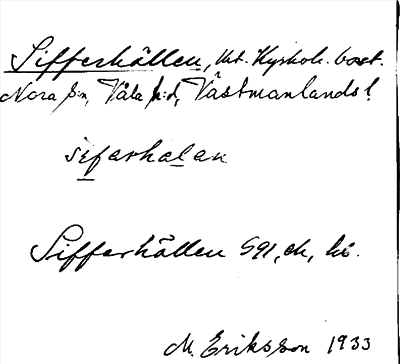 Sifferhällen, tht. Kyrkoh. bost.
Nora s:n, Våla h:d, Västmanlands l.
sifarhalan
Sifferhällen G91, ek, hi.
M. Eriksson 1933